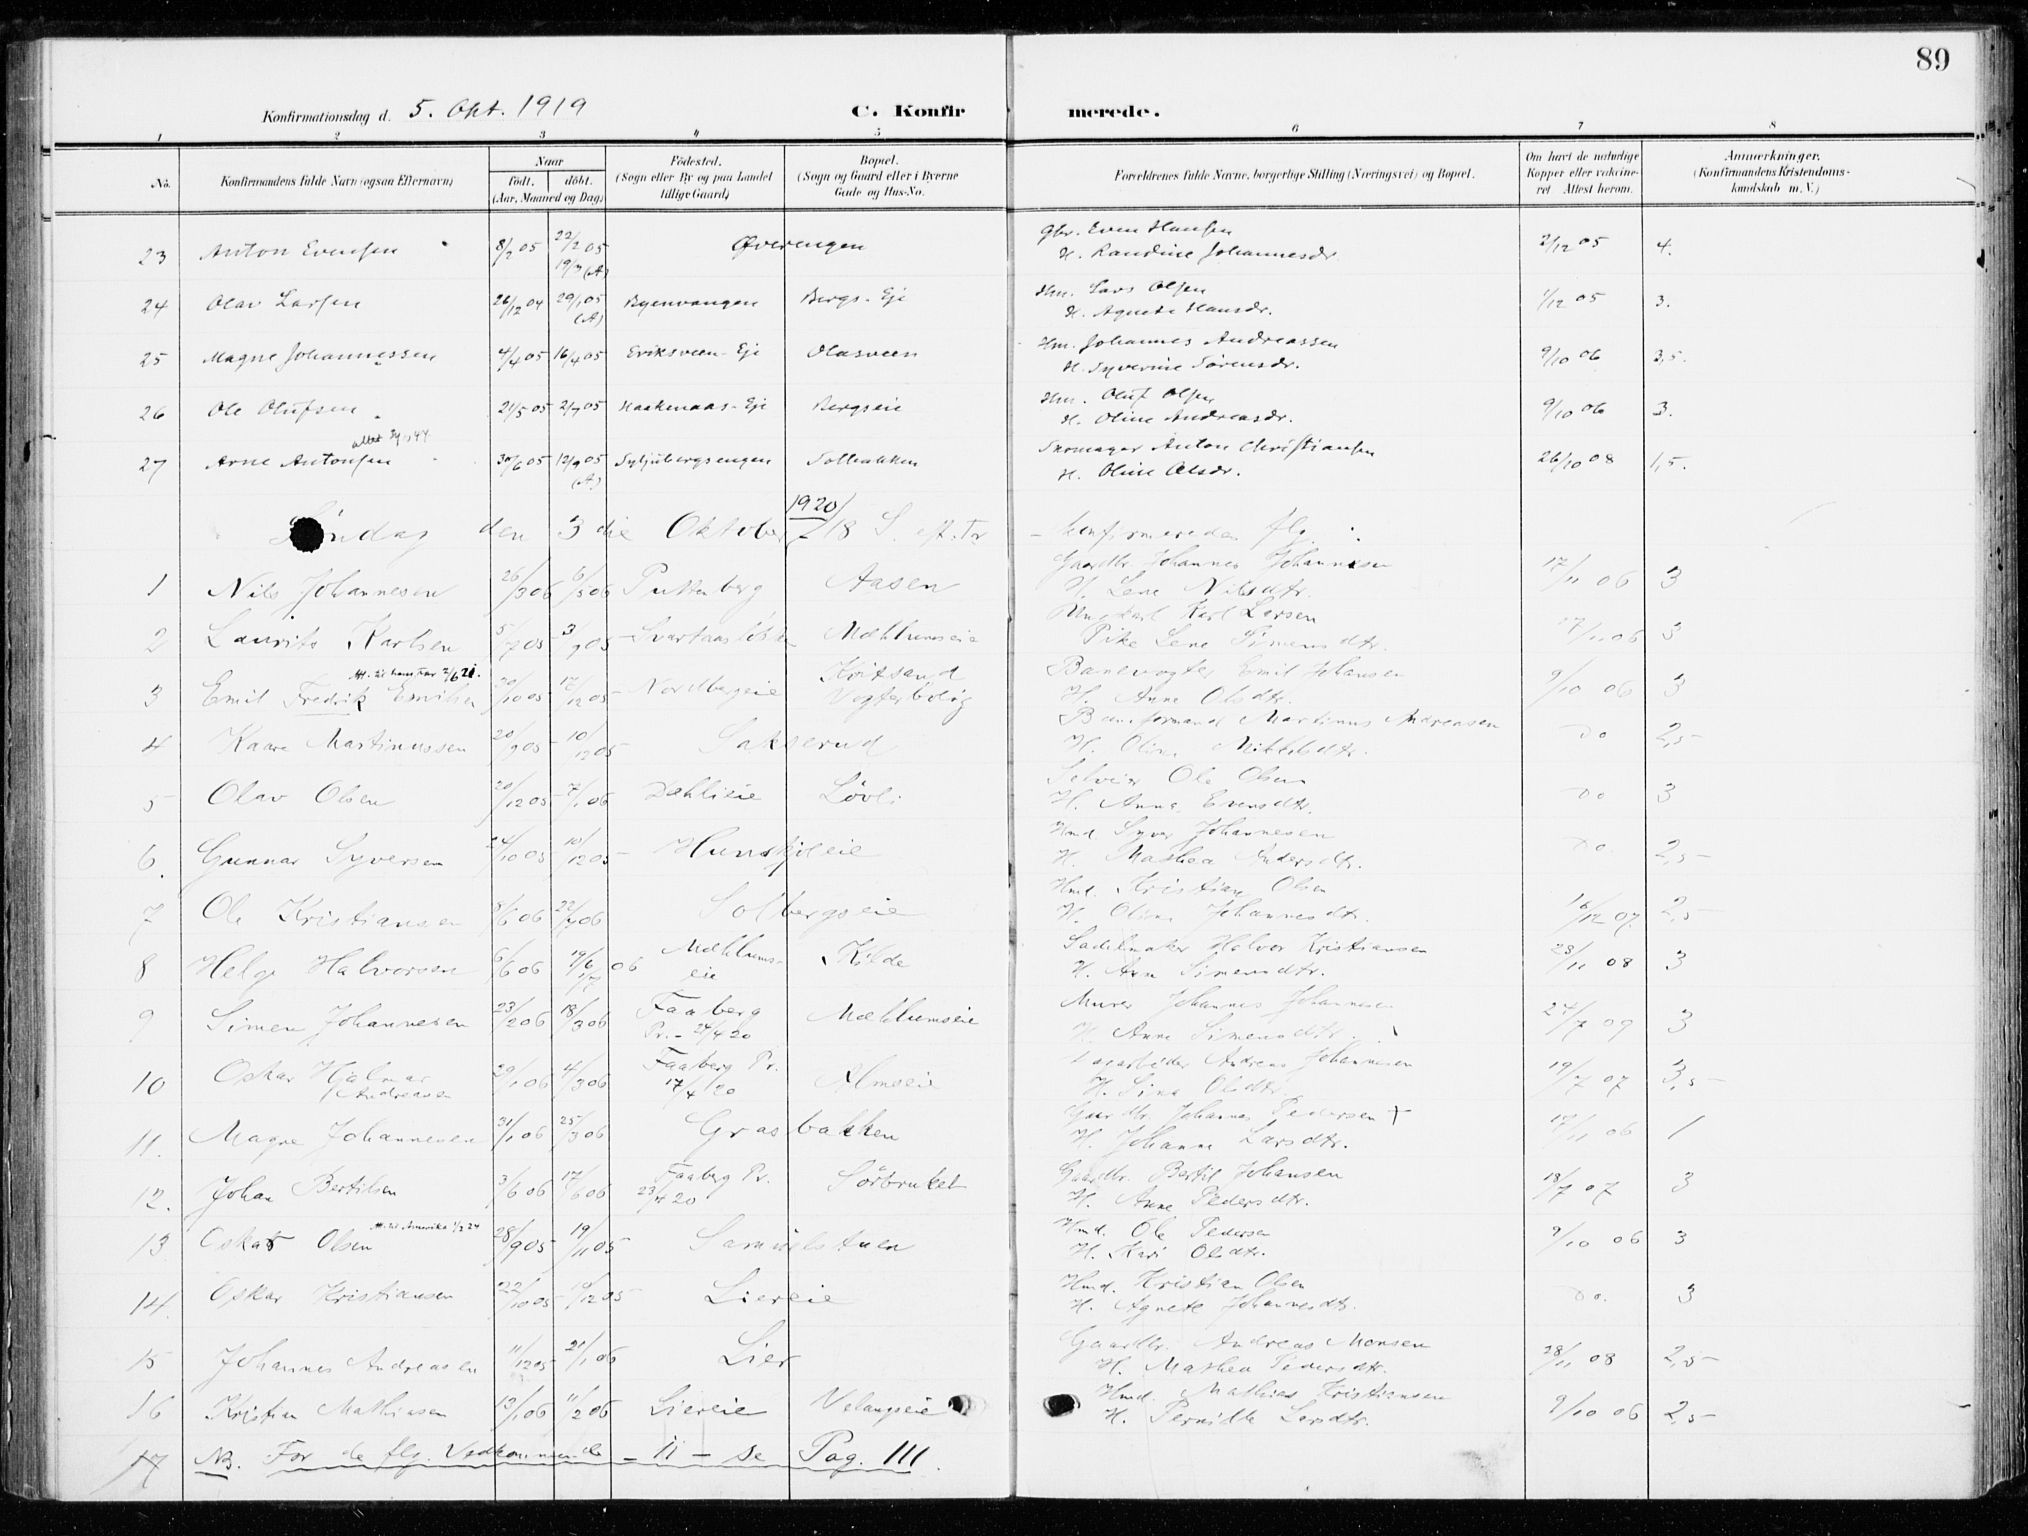 89
Konfirmationsdag d. 5. Okt. 1919 C. Konfirmerede.
1 2 3 4 5 6 7 8
No. Konfirmandens fulde Navn (ogsaa Efternavn) Naar Födt. döbt. (Aar, Maaned og Dag) Födested. (Sogn eller By og paa Landet tillige Gaard) Bopæl. (Sogn og Gaard eller i Byerne Gade og Hus-No. Forældrenes fulde Navne, borgerlige Stilling (Næringsvei) og Bopæl. Om havt de naturlige Kopper eller vakcineret Attest herom. Anmerkninger. (Konfirmandens Kristendomskundskab m. V.)
23 Anton Evensen 8/2 05 22/2 05 19/3 (A) Øverengen Gbr. Even Hansen H. Randine Johannesdr. 2/12 05 4.
24 Olav Larsen 26/12 04 29/1 05 (A) Byenvangen Bergs-Eje Hm. Lars Olsen H. Agnete Hansdr. 1/12 05 3.
25 Magne Johannessen 4/4 05 16/4 05 Eriksveen-Eje Olasveen Hm. Johannes Andreassen H. Syverine Sörensdr. 9/10 06 3,5.
26 Ole Olufsen 21/5 05 2/7 05 Haakenaas-Eje Bergseie Hm. Oluf Olsen H. Oline Andreasdr. 9/10 06 3.
27 Arne Antonsen 30/6 05 12/9 05 (A) Solbakken Skomager Anton Christiansen H. Oline Olsdr. 26/10 08 1,5.
Söndag den 3die Oktober 1920 18 S. eft. Tr. konfirmeredes flg.:
1 Nils Johannesen 26/3 06 6/5 06 Puttenberg Aasen Gaardbr. Johannes Johannesen H. Lene Nilsdtr. 17/11 06 3
2 Laurits Karlsen 5/7 05 3/9 05 Svartaaslökken Mæhlumseie Ungkarl Karl Larsen Pike Lene Simensdtr. 17/11 06 3
3 Emil Fredrik Emilsen 30/10 05 17/12 05 Nordbergeie Kritsand Vogterbolig Banevogter Emil Johansen H. Anne Olsdtr. 9/10 06 3
4 Kaare Martinussen 20/9 05 10/12 05 Sakserud Baneformand Martinus Andreasen H. Oline Mikkelsdtr. Do 2,5
5 Olav Olsen 20/12 05 7/1 06 Dæhlieie Lövli Selveier Ole Olsen H. Anna Evensdtr. Do 3
6. Gunnar Syversen 24/10 05 10/12 05 Hunskjeleie Hmd. Syver Johannesen H. Mathea Andersdtr. Do. 2,5
7 Ole Kristiansen 8/6 06 22/7 06 Solbergseie Hmd. Kristian Olsen H. Oline Johannesdtr. 16/12 07. 2,5
8 Helge Halvorsen 6/6 06 Mæhlumseie Kilde Sadelmaker Halvor Kristiansen H. Ann Simensdtr. 23/11 08 3
9 Simen Johannesen 23/2 06 18/3 06 Faaberg Pr. 24/4 20 Mæhlumseie Murer Johannes Johannesen H. Anne Simensdtr. 24/7 09 3
10 Oskar Hjalmar Andreasen 29/1 06 4/3 06 Faaberg Pr. 17/4 20 Almseie Andreas Johannesen H. Sina Olsdtr. 19/7 07 3,5
11. Magne Johannesen 31/1 06 25/3 06 Grasbakken Gaardbr. Johannes Pedersen + H. Johanne Larsdtr. 17/11 06 1
12. Johan Bertilsen 3/6 06 17/6 06 Faaberg Pr. 23/4 20 Sörbruket Gaardbr. Bertil Johansen H. Anne Pedersdtr. 18/7 07 3
13. Oskar Olsen 28/9 05 19/11 05 Samuelstuen Hmd. Ole Pedersen H. Kari Olsdtr. 9/10 06 3
14. Oskar Kristiansen 22/10 05 10/12 05 Liereie Hmd. Kristian Olsen H. Agnete Johannesdtr. Do. 3
15 Johannes Andreasen 11/12 05 21/1 06 Lier Gaardbr. Andreas Monsen H. Mathea Pedersdtr. 28/11 08 2,5
16 Kristian Mathiasen 13/1 06 11/2 06 Liereie Velangseie Hmd. Mathias Kristiansen H. Pernille Larsdtr. 9/10 06 2,5
17 NB. For de flg. Vedkommende - 11 - se Pag. 111.